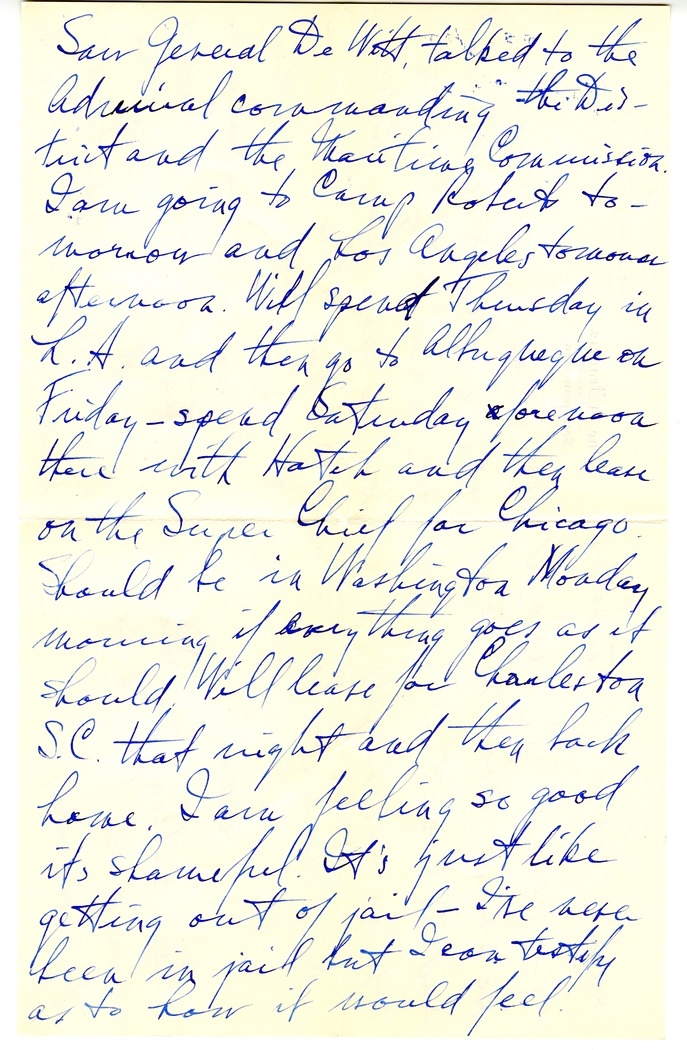 Saw General De Witt, talked to the
Admiral commanding the Dis-
trict and the Maritime Commission.
I am going to Camp Roberts to-
morrow and Los Angeles tomorrow
afternoon. Will spend Thursday in
L.A. and then go to Albuquerque on
Friday - spend Saturday forenoon
there with Hatch and then leave
on the Super Chief for Chicago.
Should be in Washington Monday
morning if everything goes as it
should. Will leave for Charleston
S.C. that night and then back
home. I am feeling so good
its shameful. It's just like
getting out of jail - I've never
been in jail but I can testify
as to how it would feel.